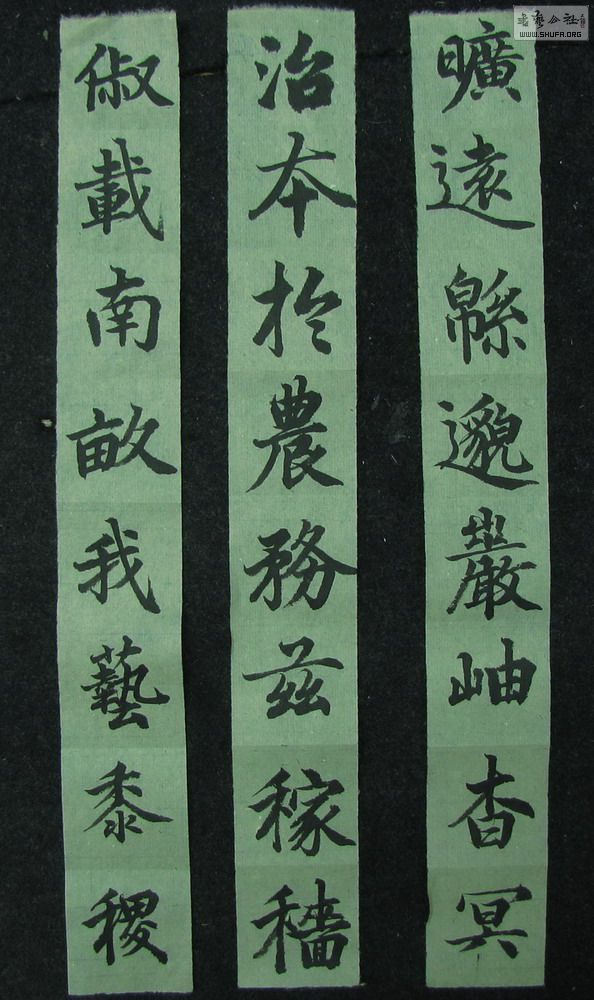 曠遠緜邈巖岫杳冥
治本於農務茲稼穡
俶載南畝我藝黍稷
書藝公社
WWW.SHUFA.ORG